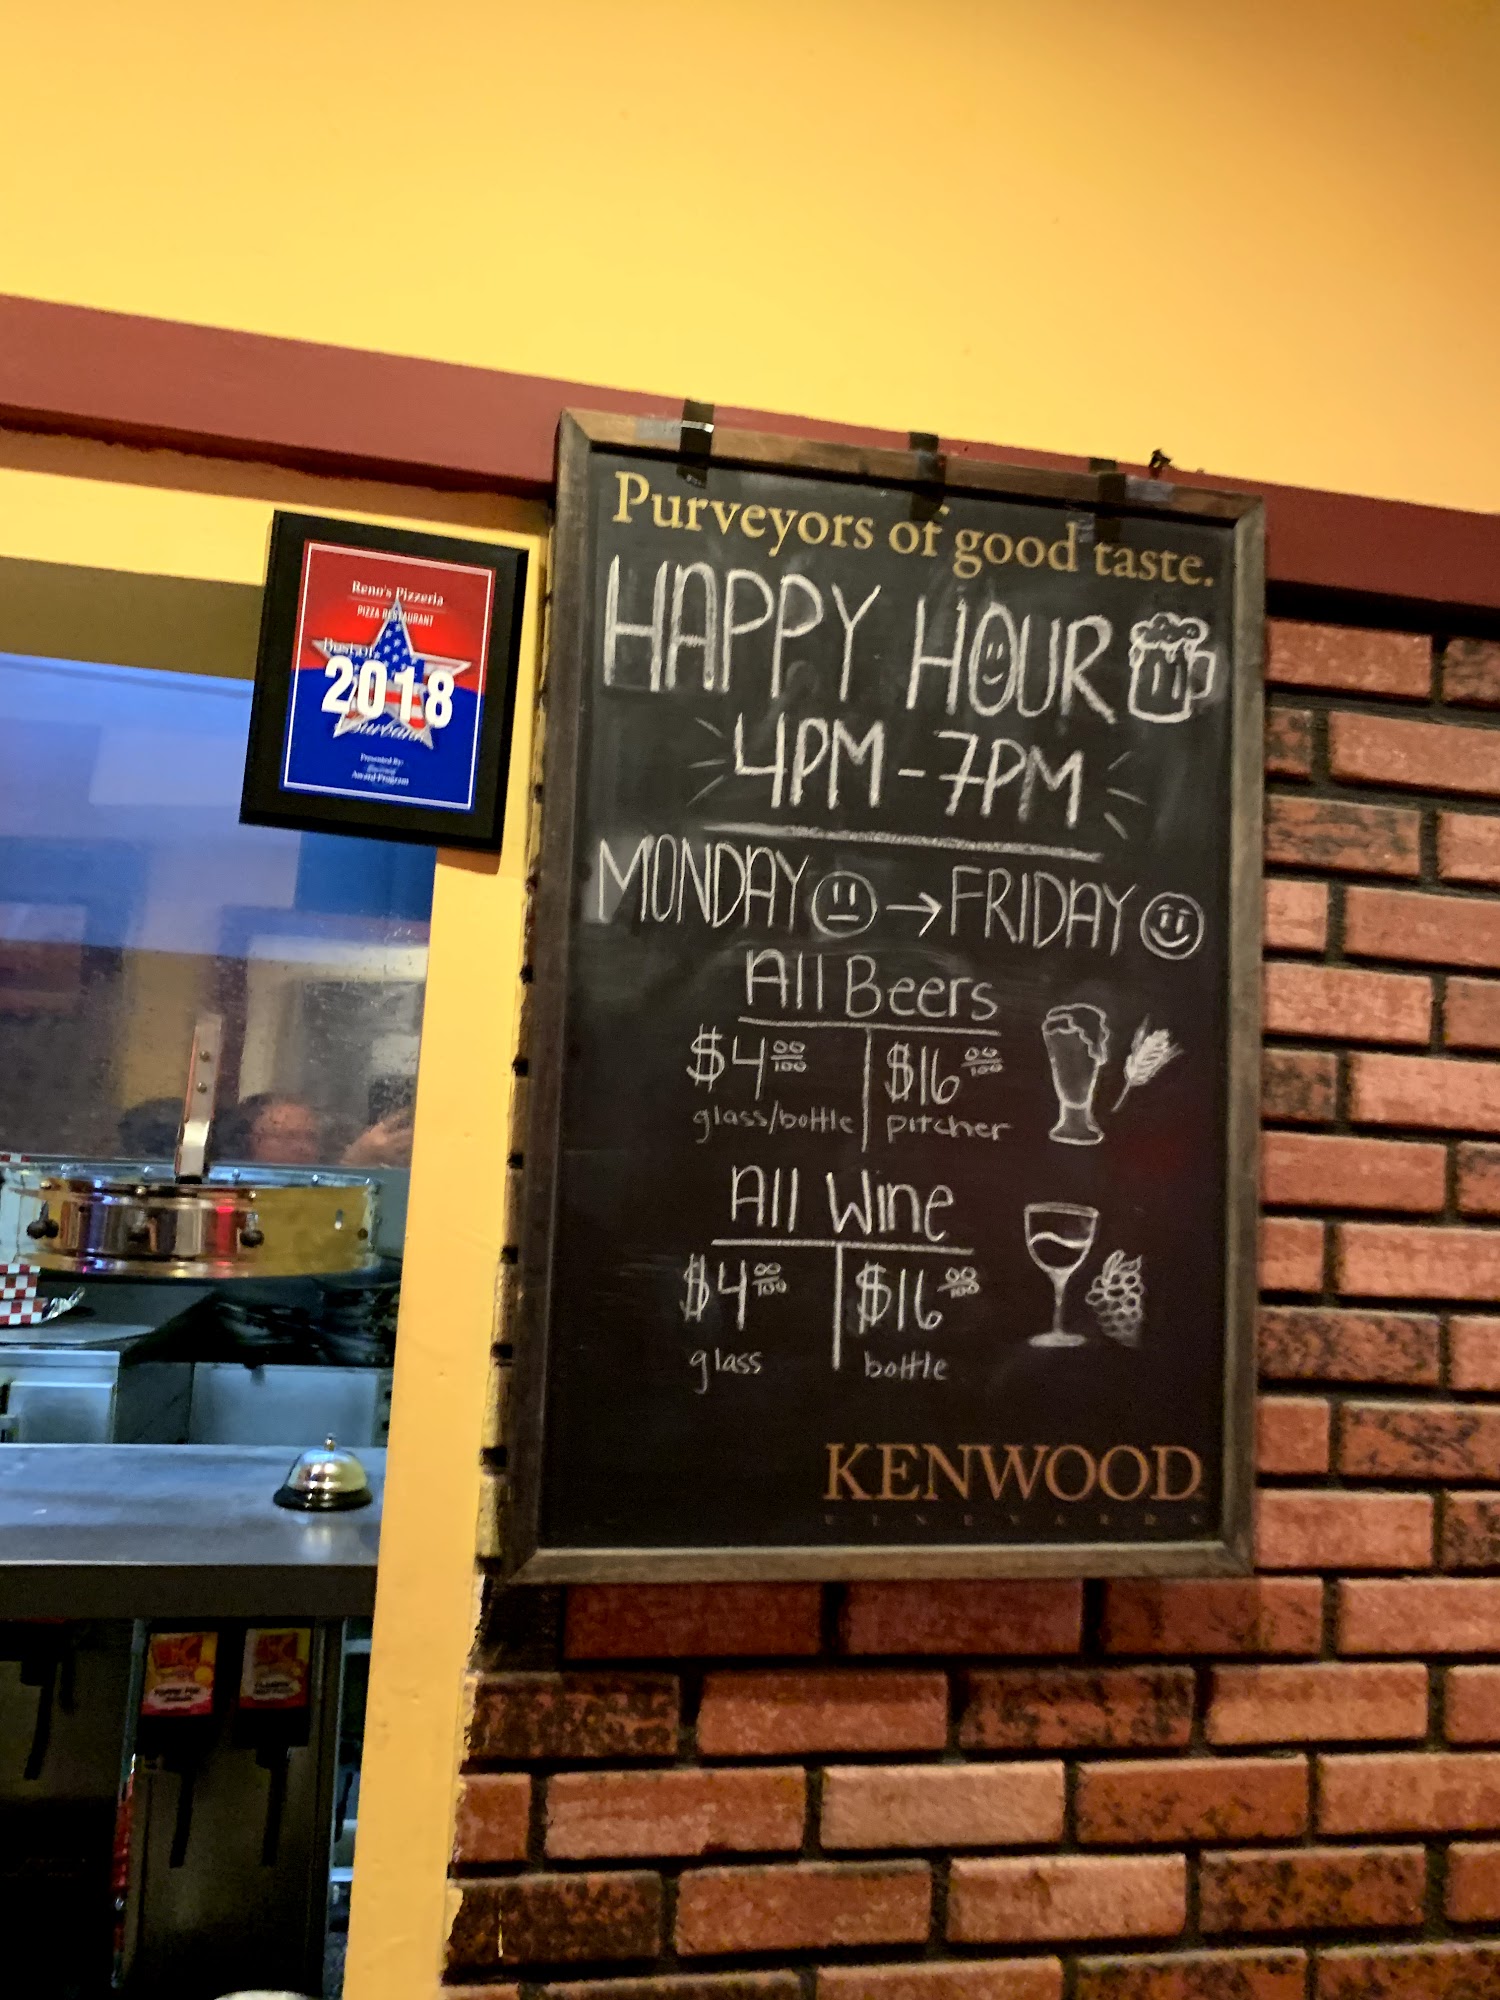 Purveyors of good taste.
HAPPY HOUR
4PM - 7PM
MONDAY → FRIDAY
All Beers
$4 00/100 $16 00/100
glass/bottle pitcher
All Wine
$4 00/100 $16 00/100
glass bottle
KENWOOD
VINEYARDS
Reno's Pizzeria
PIZZA RESTAURANT
Best of
2018
Burbank
Presented By:
Award Program